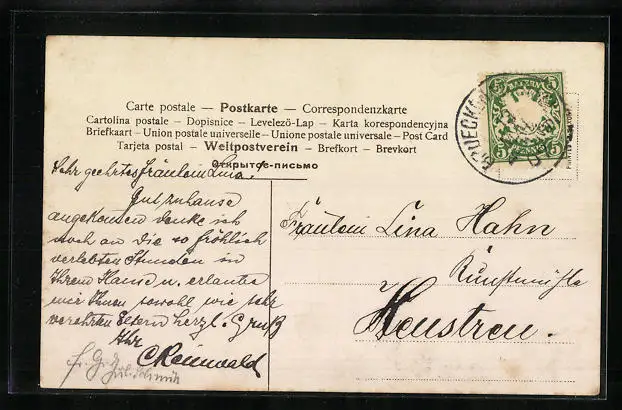 Carte postale — Postkarte — Correspondenzkarte
Cartolina postale – Dopisnice – Levelező-Lap – Karta korespondencyjna
Briefkaart – Union postale universelle – Unione postale universale – Post Card
Tarjeta postal – Weltpostverein – Brefkort – Brevkort
Открытое-письмо
Sehr geehrtes Fräulein Lina!
Gut zuhause
angekommen denke ich
noch an die so fröhlich
verlebten Stunden in
Ihrem Hause u. erlaube
mir Ihnen sowohl wie sehr
verehrten Eltern herzl. Gruß
Ihr
C Reinwald
Fräulein Lina Hahn
Kunstmühle
Heustreu.
BAYERN
5 5
5 PFENNIG 5